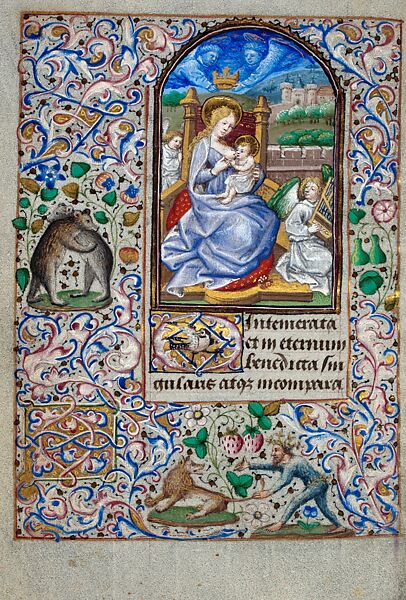 O Intemerata
et in eternum
benedicta sin
gularis atq; incompara